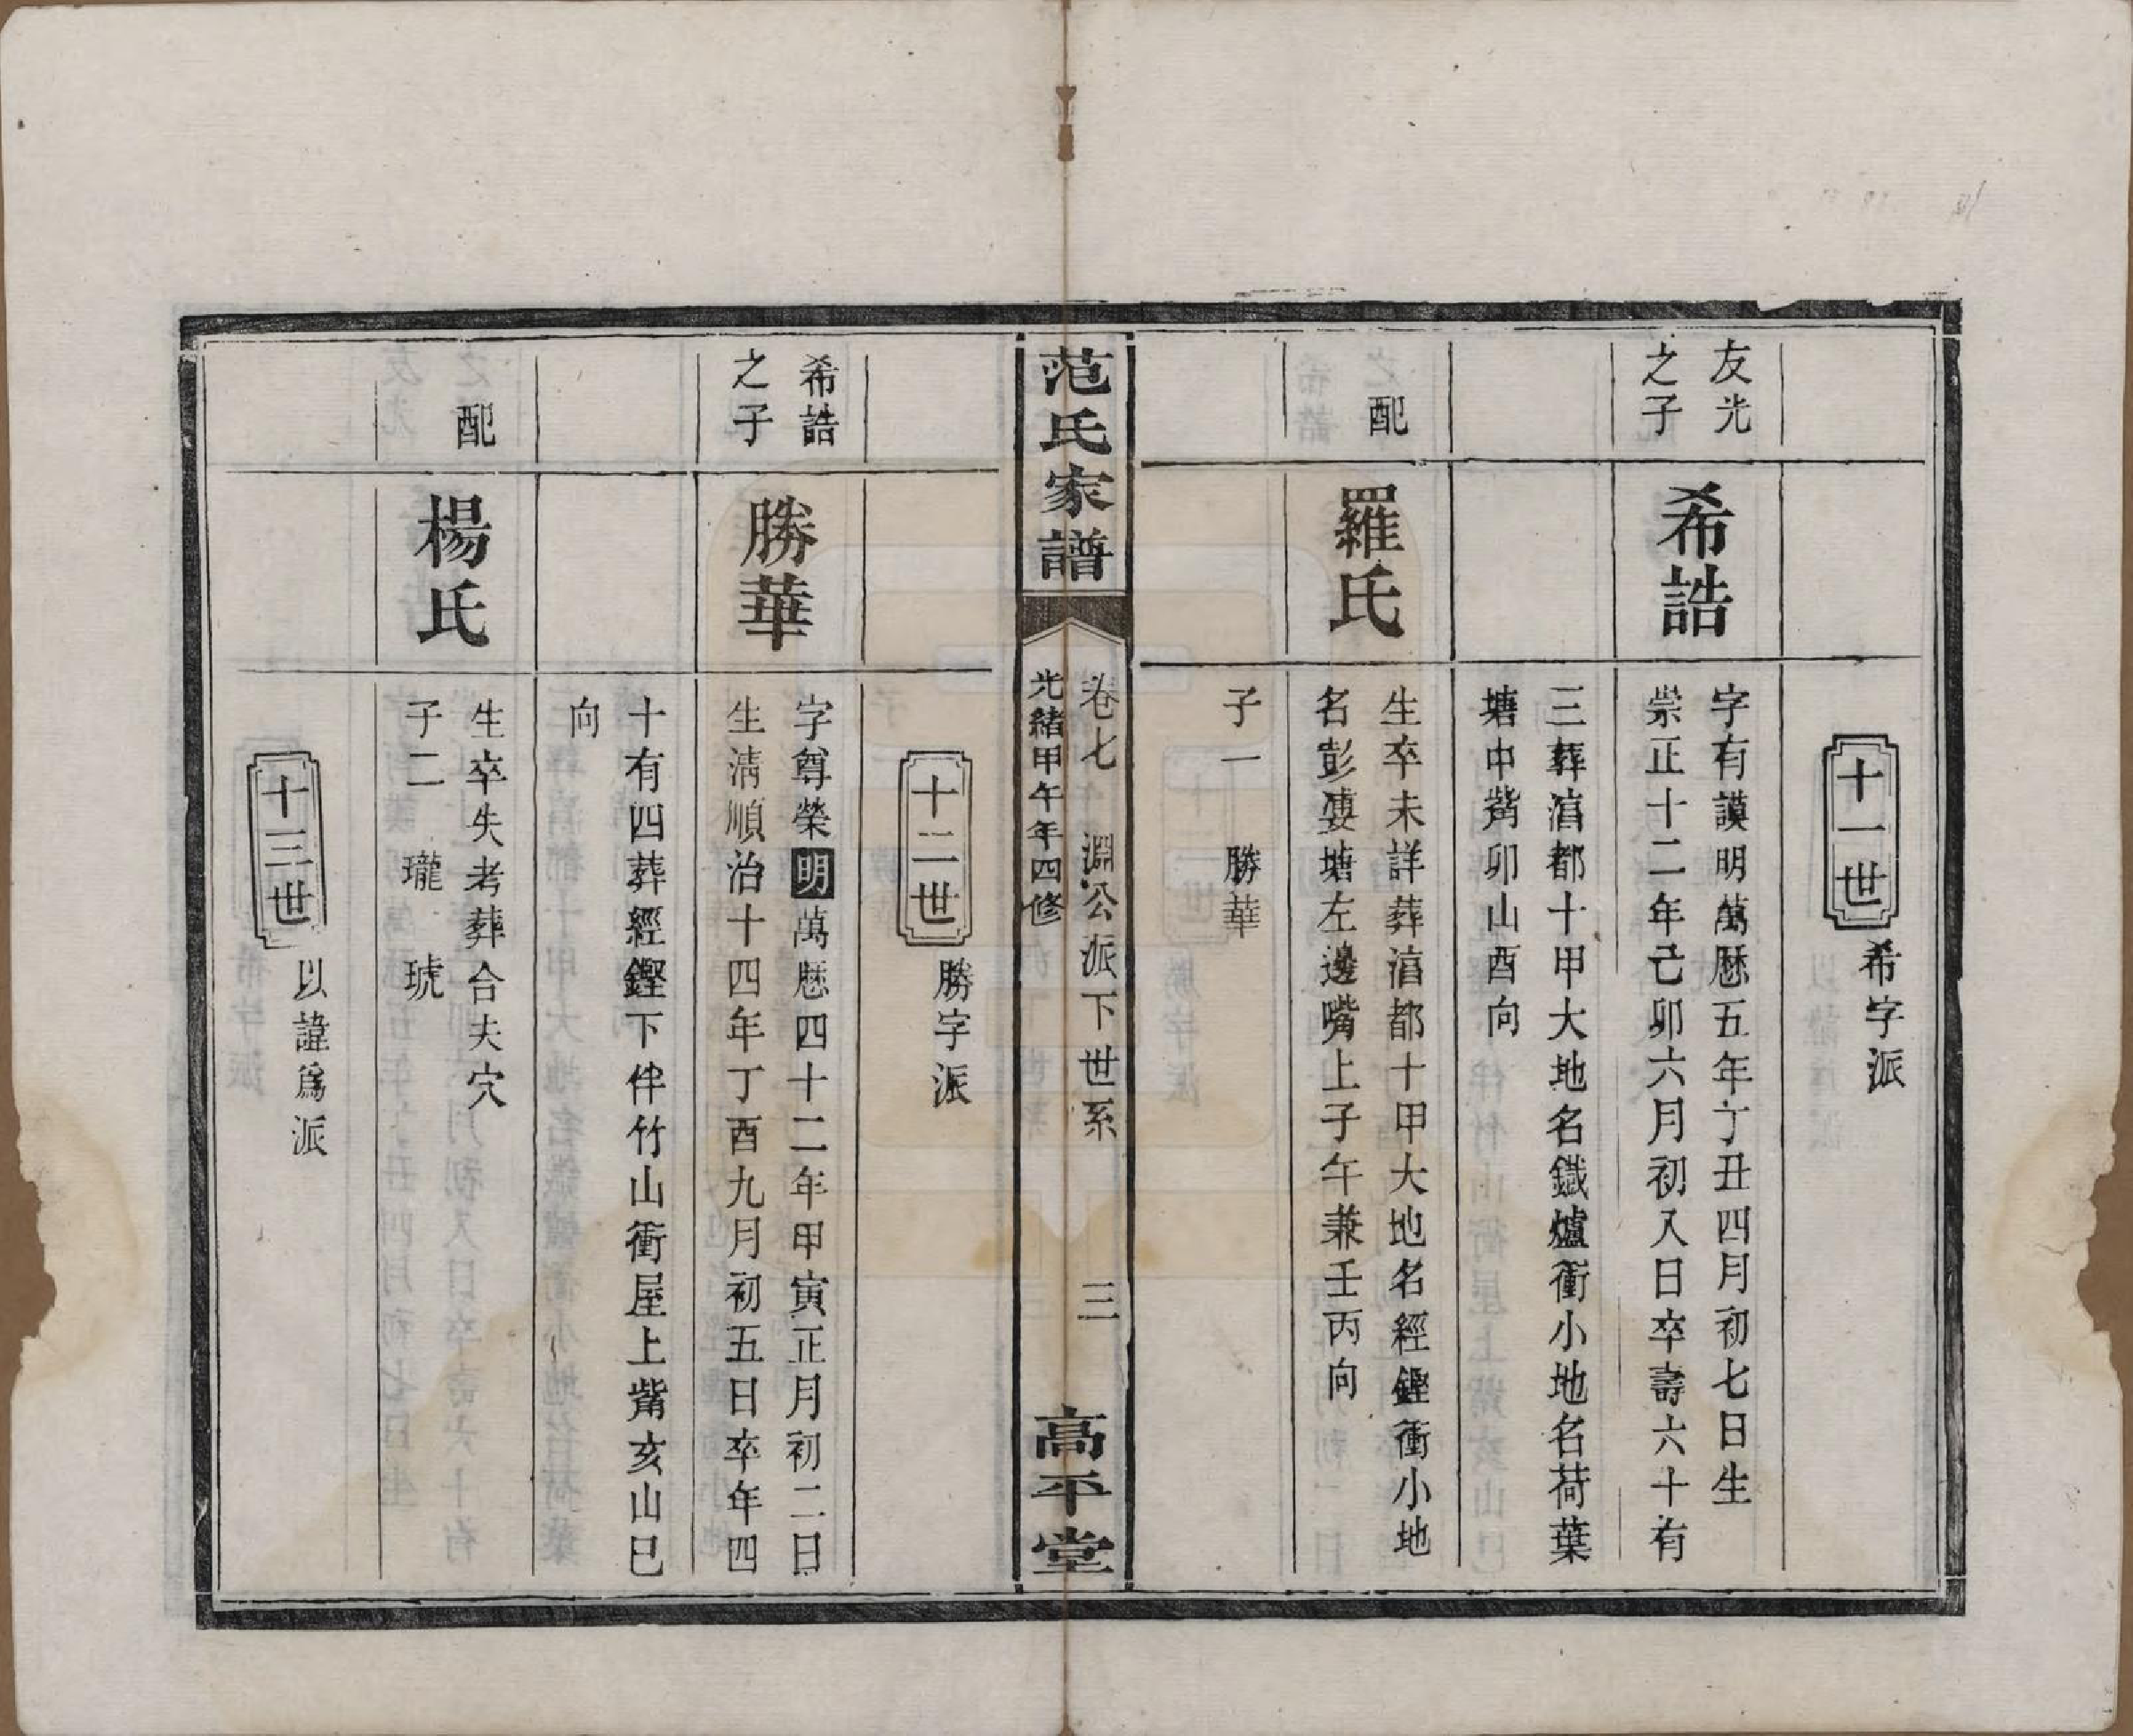 十一世
希字派
友光
之子
希誥
字有謨明萬厯五年丁丑四月初七日生
崇正十二年己卯六月初八日卒壽六十有
三葬湻都十甲大地名鐵爐衝小地名荷葉
塘中嘴卯山酉向
配
羅氏
生卒未詳葬湻都十甲大地名經鏗衝小地
名彭婆塘左邊嘴上子午兼壬丙向
子一　勝華
范氏家譜
卷七　淵公派下世系　三
光緒甲午年四修
高平堂
十二世
勝字派
希誥
之子
勝華
字尊榮明萬厯四十二年甲寅正月初二日
生清順治十四年丁酉九月初五日卒年四
十有四葬經鏗下伴竹山衝屋上嘴亥山巳
向
配
楊氏
生卒失考葬合夫穴
子二　瓏　琥
十三世
以諱爲派